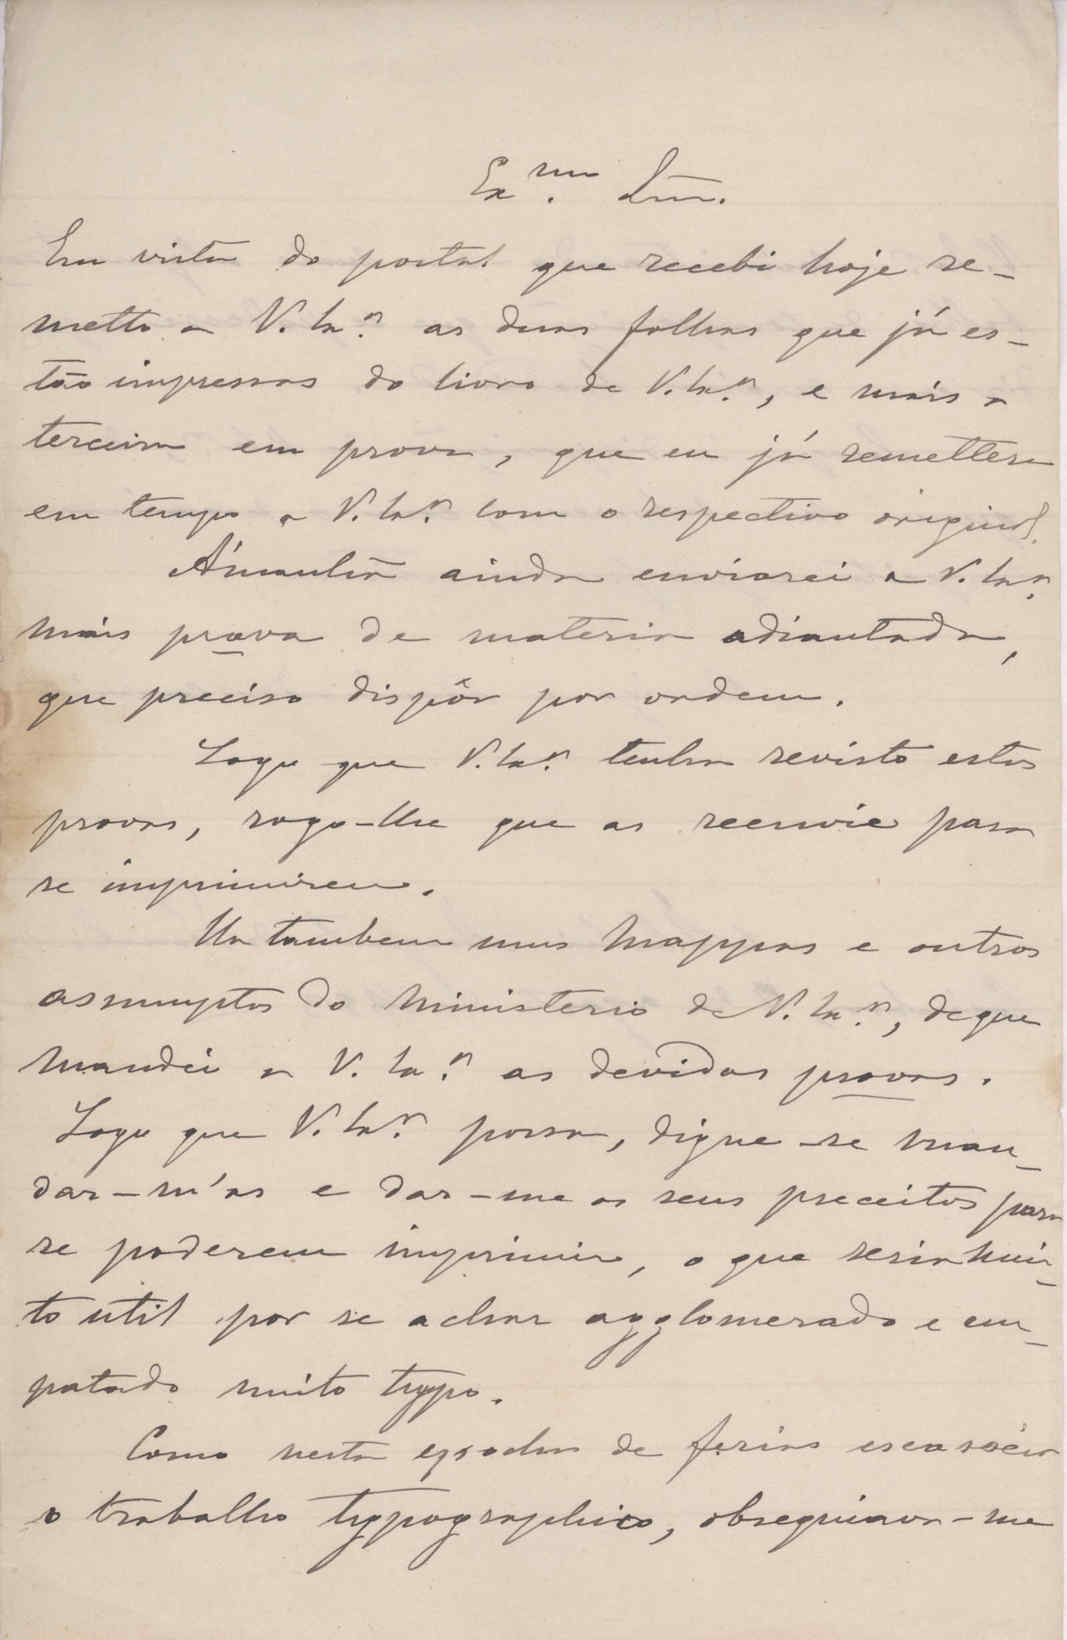 Ex.mo Snr.
Em vista do postal que recebi hoje re-
metto a V. Ex.ª as duas folhas que já es-
tão impressas do livro de V. Ex.ª, e mais a
terceira em prova, que eu já remettera
em tempo a V. Ex.ª com o respectivo original.
Ámanhã ainda enviarei a V. Ex.ª
mais prova de materia adiantada,
que preciso dispôr por ordem.
Logo que V. Ex.ª tenha revisto estas
provas, rogo-lhe que as reenvie para
se imprimirem.
Ha tambem uns mappas e outros
assumptos do Ministerio de V. Ex.ª, de que
mandei a V. Ex.ª as devidas provas.
Logo que V. Ex.ª possa, digne-se man-
dar-m'as e dar-me os seus preceitos para
se poderem imprimir, o que seria mui-
to util por se achar agglomerado e em-
patado muito typo.
Como nesta epocha de ferias escasseia
o trabalho typographico, obsequiava-me